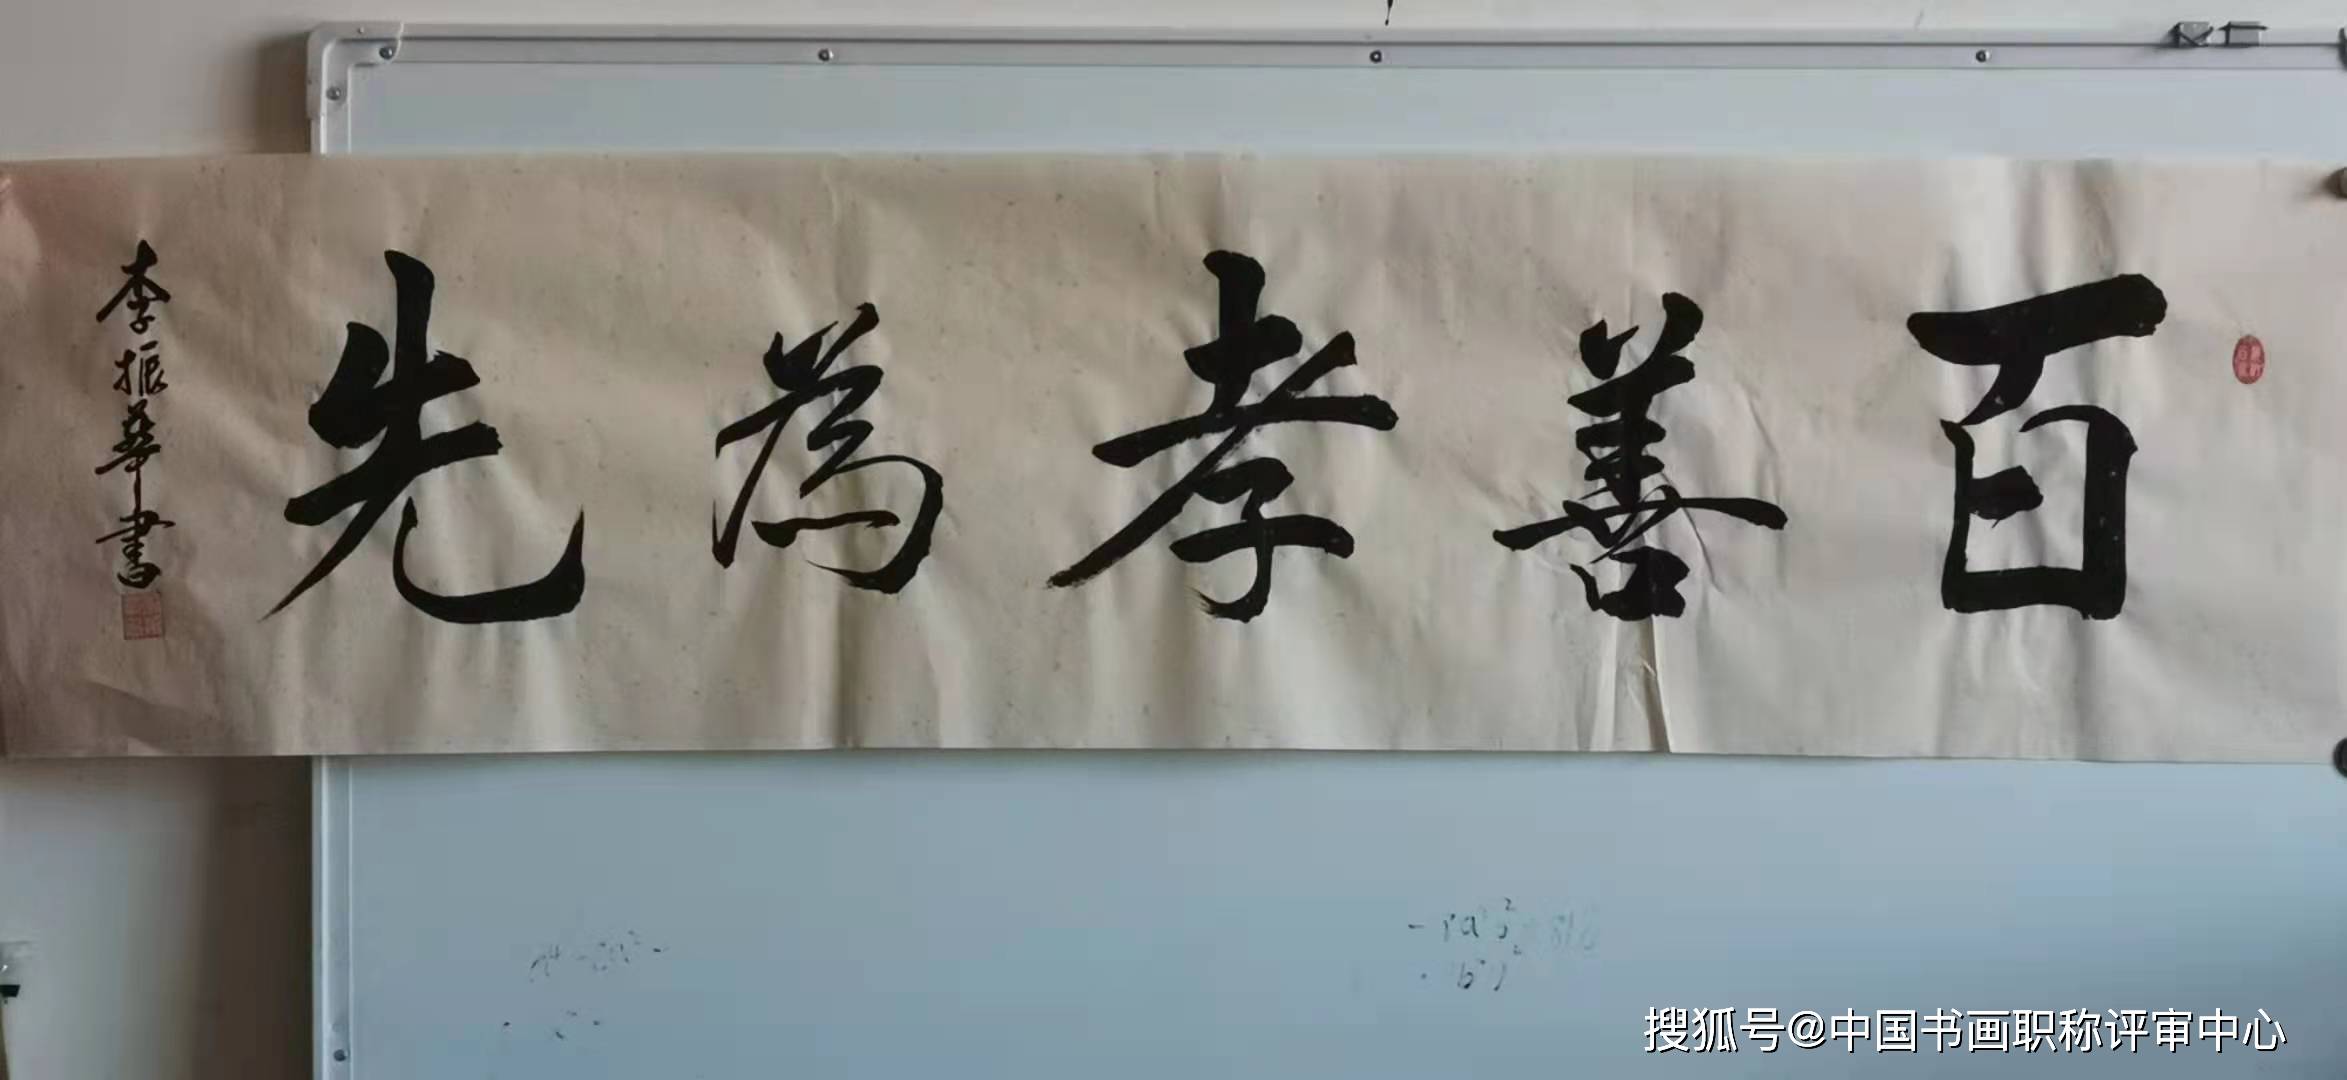 百善孝為先
李振華書
搜狐号@中国书画职称评审中心